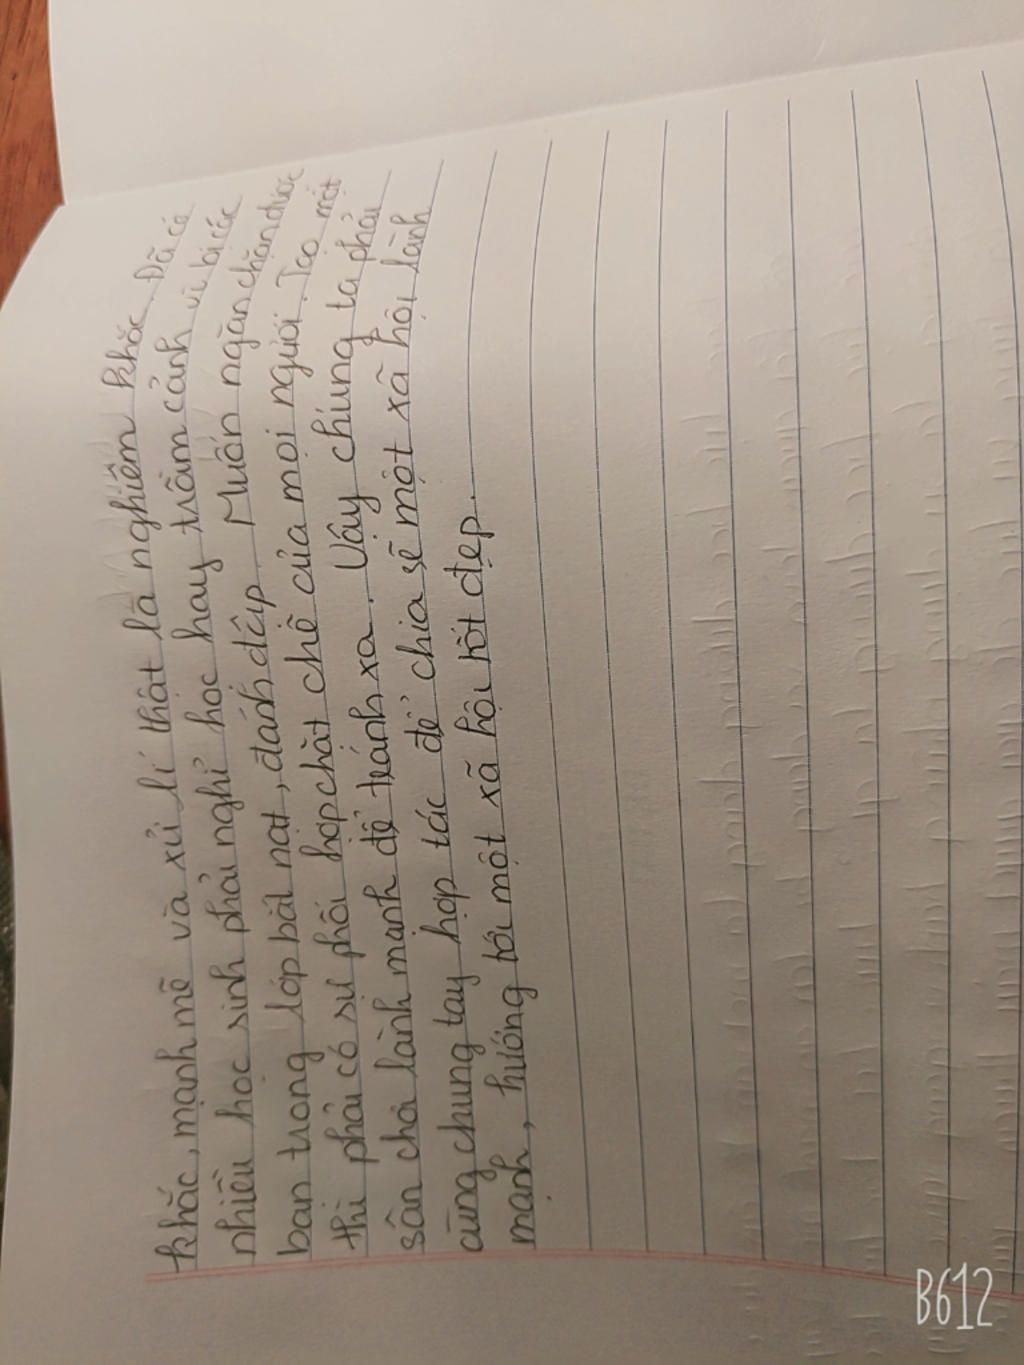 khắc, mạnh mẽ và xử lí thật là nghiêm khắc. Đã có
nhiều học sinh phải nghỉ học hay trầm cảnh vì bị các
bạn trong lớp bắt nạt, đánh đập. Muốn ngăn chặn được
thì phải có sự phối hợp chặt chẽ của mọi người. Tạo một
sân chơi lành mạnh để tránh xa. Vậy chúng ta phải
cùng chung tay hợp tác để chia sẽ một xã hội lành
mạnh, hướng tới một xã hội tốt đẹp.
B612